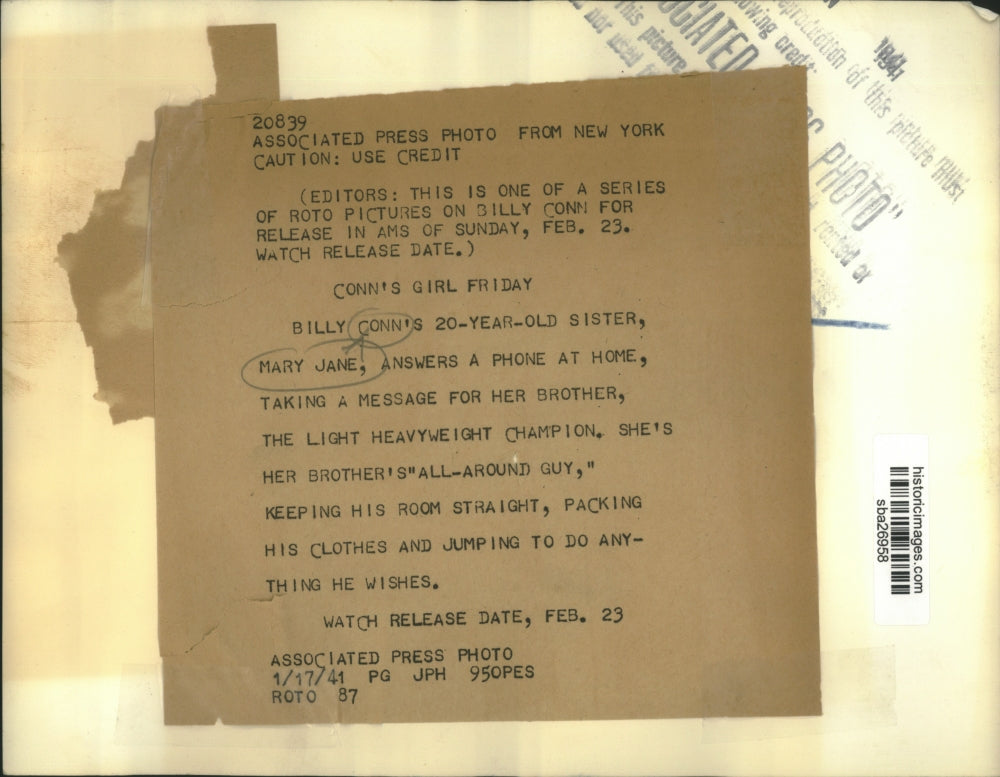 20839
ASSOCIATED PRESS PHOTO FROM NEW YORK
CAUTION: USE CREDIT
(EDITORS: THIS IS ONE OF A SERIES
OF ROTO PICTURES ON BILLY CONN FOR
RELEASE IN AMS OF SUNDAY, FEB. 23.
WATCH RELEASE DATE.)
CONN'S GIRL FRIDAY
BILLY CONN'S 20-YEAR-OLD SISTER,
MARY JANE, ANSWERS A PHONE AT HOME,
TAKING A MESSAGE FOR HER BROTHER,
THE LIGHT HEAVYWEIGHT CHAMPION. SHE'S
HER BROTHER'S"ALL-AROUND GUY,"
KEEPING HIS ROOM STRAIGHT, PACKING
HIS CLOTHES AND JUMPING TO DO ANY-
THING HE WISHES.
WATCH RELEASE DATE, FEB. 23
ASSOCIATED PRESS PHOTO
1/17/41 PG JPH 950PES
ROTO 87
1941
reproduction of this picture must
owing credit:
OCIATED PHOTO"
This picture rented or
nor used
historicimages.com
sba26958